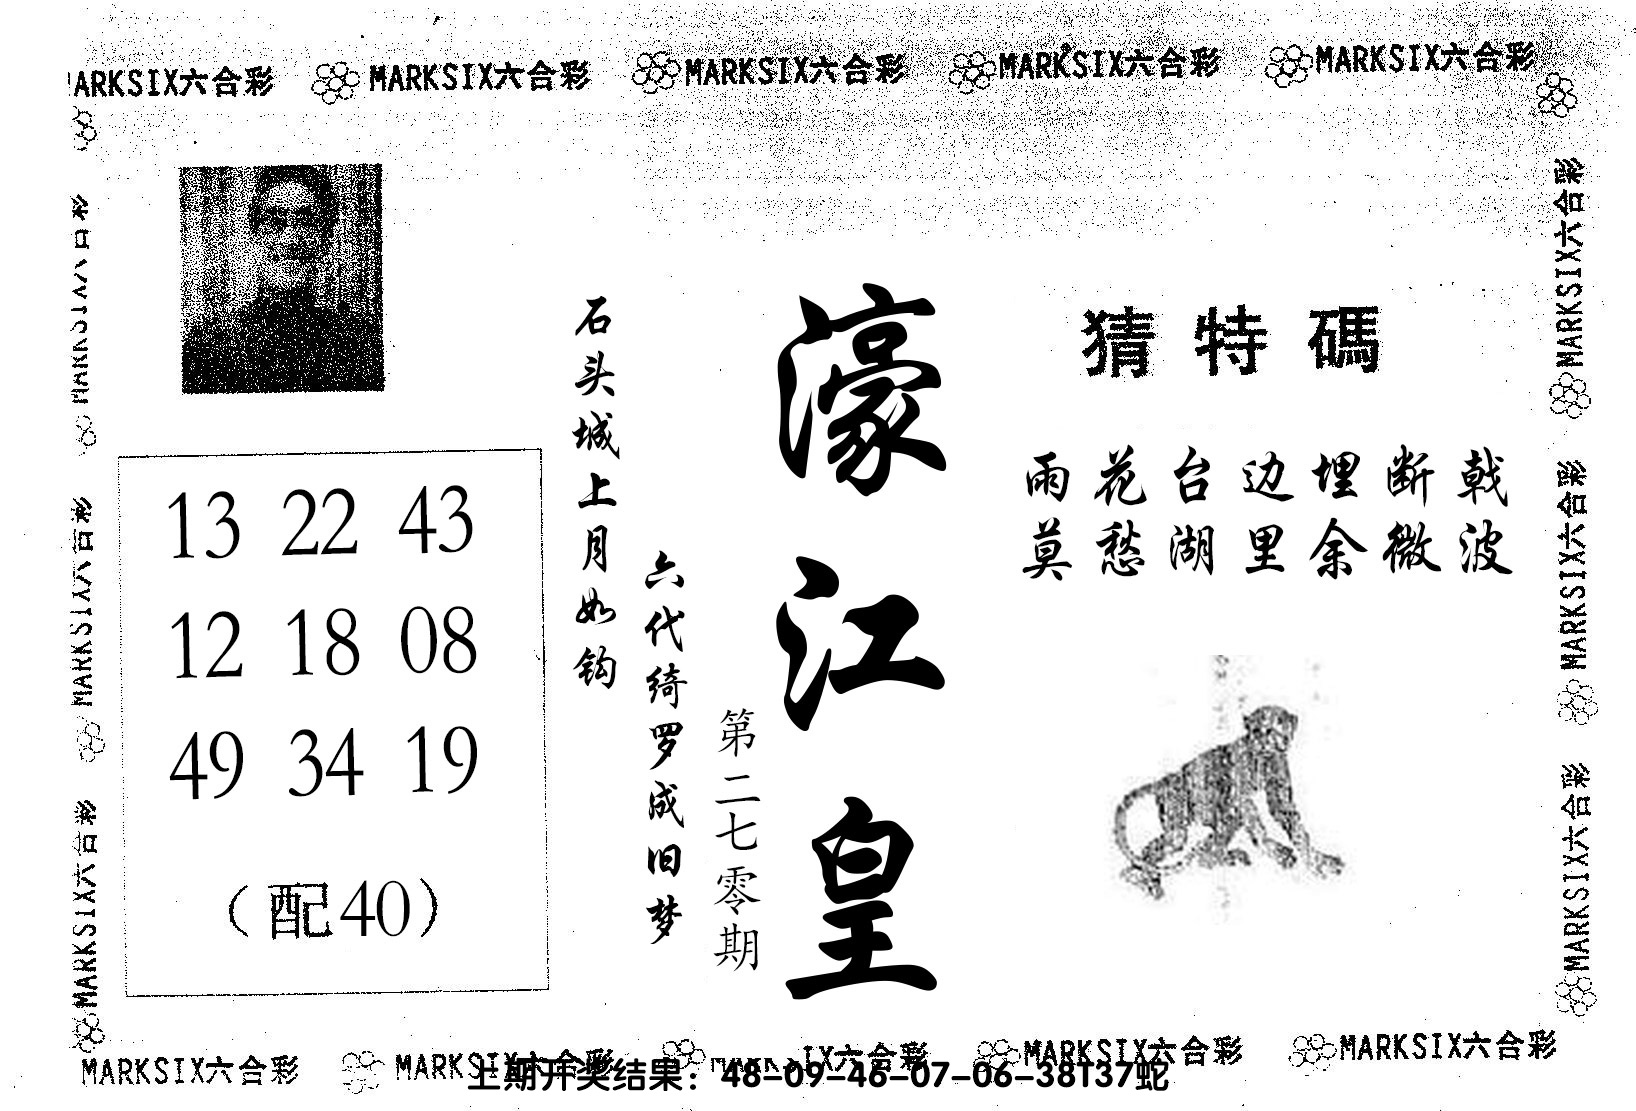 MARKSIX六合彩 MARKSIX六合彩 MARKSIX六合彩 MARKSIX六合彩
MARKSIX六合彩
MARKSIX六合彩
MARKSIX六合彩
猜特碼
雨花台边埋断戟
莫愁湖里余微波
濠江皇
第二七零期
石头城上月如钩
六代绮罗成旧梦
13 22 43
12 18 08
49 34 19
（配40）
MARKSIX六合彩
MARKSIX六合彩
MARKSIX六合彩 MARKSIX六合彩 MARKSIX六合彩 MARKSIX六合彩
上期开奖结果：48-09-46-07-06-38T37蛇